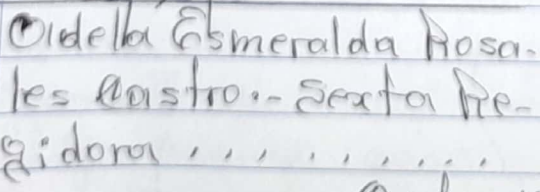 Oidella Esmeralda Rosa-
les Castro.- Sexta Re-
gidora , , , , , , , , , ,